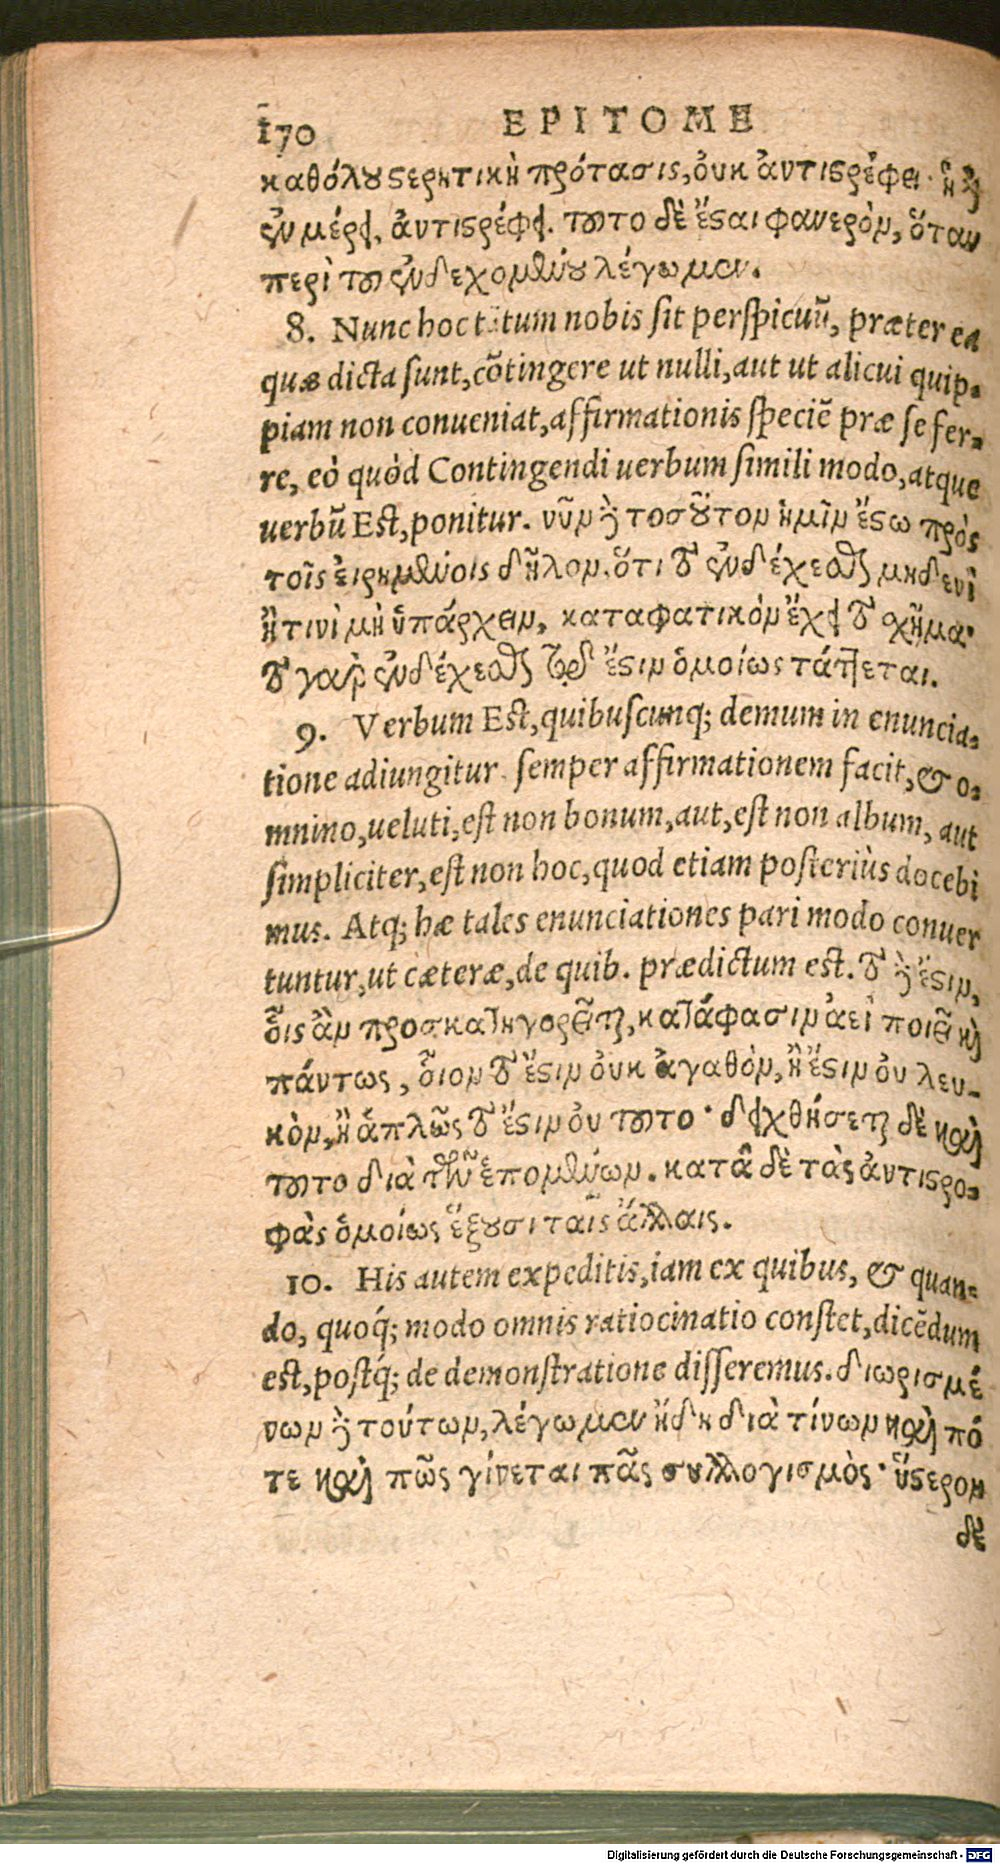 170 EPITOME
καθόλου στερητικὴ πρότασις, οὐκ ἀντιστρέφει· ἡ δὲ
ἐν μέρει, ἀντιστρέφει. τοῦτο δὲ ἔσται φανερὸν, ὅταν
περὶ τοῦ ἐνδεχομένου λέγωμεν.
8. Nunc hoc tātum nobis sit perspicuū, præter ea
quæ dicta sunt, cōtingere ut nulli, aut ut alicui quip-
piam non conueniat, affirmationis speciē præ se fer-
re, eò quòd Contingendi uerbum simili modo, atque
uerbū Est, ponitur. νῦν δὲ τοσοῦτον ἡμῖν ἔστω πρὸς
τοῖς εἰρημένοις δῆλον. ὅτι τὸ ἐνδέχεσθαι μηδενὶ
ἢ τινὶ μὴ ὑπάρχειν, καταφατικὸν ἔχει τὸ σχῆμα·
τὸ γὰρ ἐνδέχεσθαι τῷ ἔστιν ὁμοίως τάττεται.
9. Verbum Est, quibuscunq; demum in enuncia-
tione adiungitur, semper affirmationem facit, & o-
mnino, ueluti, est non bonum, aut, est non album, aut
simpliciter, est non hoc, quod etiam posteriùs docebi
mus. Atq; hæ tales enunciationes pari modo conuer
tuntur, ut cæteræ, de quib. prædictum est. τὸ δὲ ἔστιν,
οἷς ἂν προσκατηγορεῖται, κατάφασιν ἀεὶ ποιεῖ καὶ
πάντως, οἷον τὸ ἔστιν οὐκ ἀγαθὸν, ἢ ἔστιν οὐ λευ-
κὸν, ἢ ἁπλῶς τὸ ἔστιν οὐ τοῦτο· δειχθήσεται δὲ καὶ
τοῦτο διὰ τῶν ἑπομένων. κατὰ δὲ τὰς ἀντιστρο-
φὰς ὁμοίως ἕξουσι ταῖς ἄλλαις.
10. His autem expeditis, iam ex quibus, & quan-
do, quoq́; modo omnis ratiocinatio constet, dicēdum
est, postq́; de demonstratione disseremus. διωρισμέ
νων δὲ τούτων, λέγωμεν ἤδη διὰ τίνων καὶ πό
τε καὶ πῶς γίνεται πᾶς συλλογισμὸς· ὕστερον
δὲ
Digitalisierung gefördert durch die Deutsche Forschungsgemeinschaft - DFG